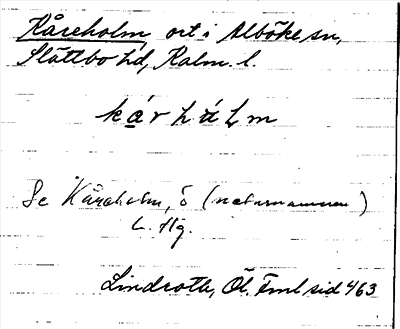 Kåreholm ort i Alböke sn,
Slättbo hd, Kalm. l.
kárhúlm
Se Kåreholm, ö (naturnamnen)
L. Hg.
Lindroth, Öl. Fml sid 463